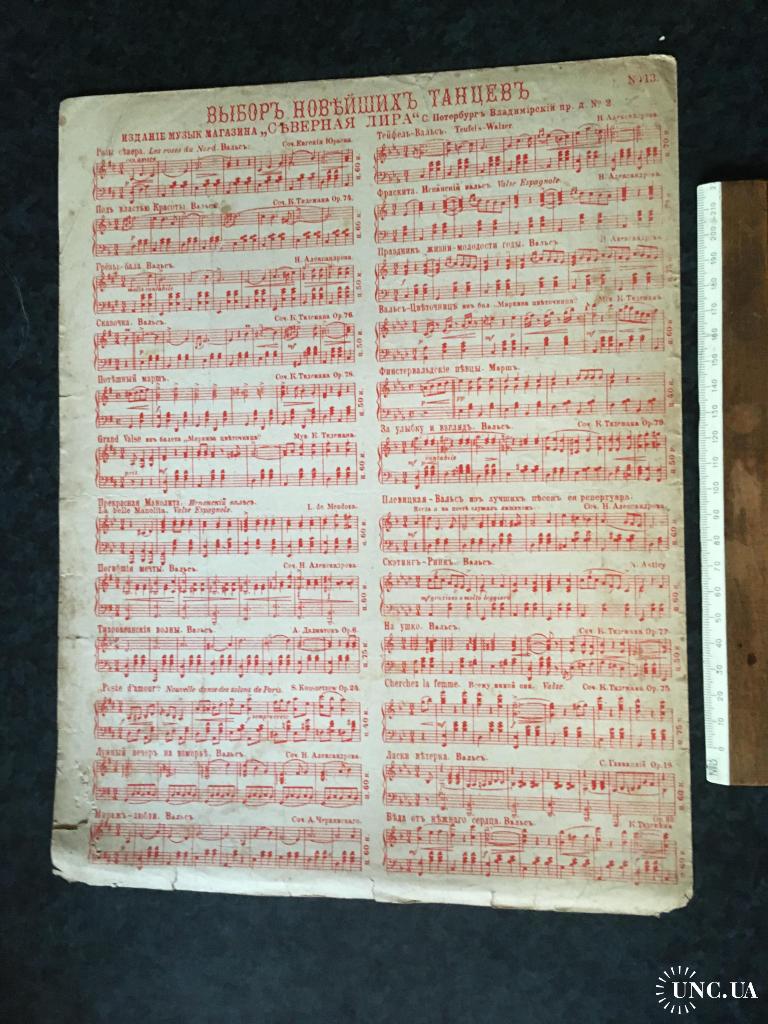 №13.
ВЫБОРЪ НОВѢЙШИХЪ ТАНЦЕВЪ
ИЗДАНІЕ МУЗЫК МАГАЗИНА „СѢВЕРНАЯ ЛИРА“ С. Петербургъ Владимірскій пр. д № 2
Розы сѣвера. Les roses du Nord. Вальсъ. Соч. Евгенія Юрьева.
ц. 60 к.
Подъ властью Красоты. Вальсъ. Соч. К. Тидемана Op. 74.
ц. 60 к.
Грёзы-бала. Вальсъ. Н. Александрова.
molto cantabile
ц. 50 к.
Сказочка. Вальсъ. Соч. К. Тидемана Op. 76.
ц. 50 к.
Потѣшный маршъ. Соч. К. Тидемана Op. 78.
ц. 40 к.
Grand Valse изъ балета „Маркиза цвѣточница“ Муз. К. Тидемана.
ц. 60 к.
Прекрасная Манолита. Испанскій вальсъ.
La belle Manolita. Valse Espagnole. L. de Mendoza.
ц. 60 к.
Погибшія мечты. Вальсъ. Соч. Н. Александрова.
ц. 60 к.
Тихоокеанскія волны. Вальсъ. А. Далматовъ Op. 6.
ц. 75 к.
„Passe d'amour“ Nouvelle danse des salons de Paris. S. Op. 24.
ц. 40 к.
Лунный вечеръ на взморьѣ. Вальсъ. Соч. Н. Александрова.
ц. 60 к.
Миражъ-любви. Вальсъ. Соч. А. Чернявскаго.
ц. 60 к.
Тейфель-Вальсъ. Teufels-Walzer. Н. Александрова.
ц. 70 к.
Фраскита. Испанскій вальсъ. Valse Espagnole. Н. Александрова.
Праздникъ жизни-молодости годы. Вальсъ. Н. Александрова.
Вальсъ-Цвѣточницъ изъ бал. „Маркиза цвѣточница“ Муз. К. Тидемана.
ц. 60 к.
Финстервальдскіе пѣвцы. Маршъ.
ц. 40 к.
За улыбку и взглядъ. Вальсъ. Соч. К. Тидемана Op. 79.
mf cantabile
ц. 50 к.
Плевицкая-Вальсъ изъ лучшихъ пѣсенъ ея репертуара.
Соч. Н. Александрова.
ц. 60 к.
Скэтингъ-Ринкъ. Вальсъ. N. Astley
mf grazioso e molto leggiero
ц. 60 к.
На ушко. Вальсъ. Соч. К. Тидемана Op. 77.
ц. 50 к.
Cherchez la femme. Всему виной она. Valse. Соч. К. Тидемана Op. 75.
ц. 75 к.
Ласки вѣтерка. Вальсъ. Op. 18.
ц. 60 к.
Бѣда отъ нѣжнаго сердца. Вальсъ. К. Тидемана
ц. 60 к.
UNC.UA